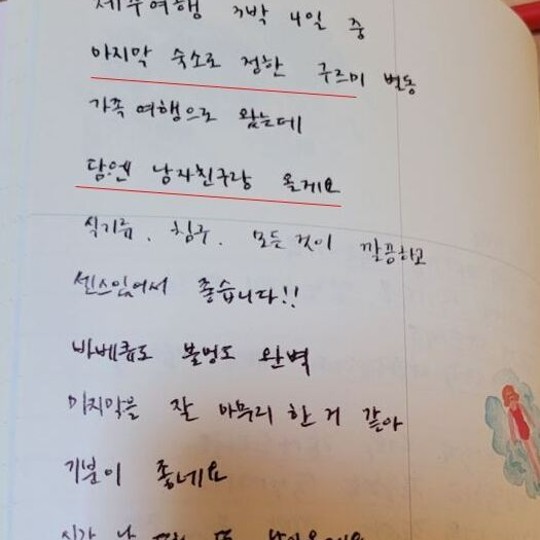 제주여행 3박 4일 중
마지막 숙소로 정한 구르미 별동
가족여행으로 왔는데
담엔 남자친구랑 올게요
식기류, 침구, 모든것이 깔끔하고
센스있어서 좋습니다!!
바베큐도 불멍도 완벽
마지막을 잘 마무리 한 거 같아
기분이 좋네요